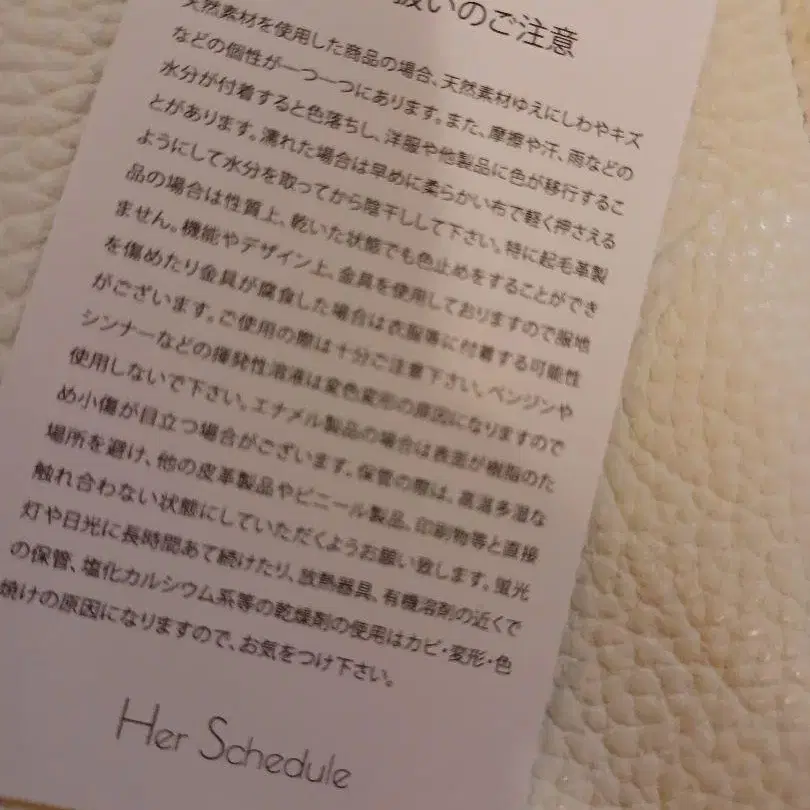 扱いのご注意
天然素材を使用した商品の場合、天然素材ゆえにしわやキズ
などの個性が一つ一つにあります。また、摩擦や汗、雨などの
水分が付着すると色落ちし、洋服や他製品に色が移行するこ
とがあります。濡れた場合は早めに柔らかい布で軽く押さえる
ようにして水分を取ってから陰干しして下さい。特に起毛革製
品の場合は性質上、乾いた状態でも色止めをすることができ
ません。機能やデザイン上、金具を使用しておりますので服地
を傷めたり金具が腐食した場合は衣服等に付着する可能性
がございます。ご使用の際は十分ご注意下さい。ベンジンや
シンナーなどの揮発性溶液は変色変形の原因になりますので
使用しないで下さい。エナメル製品の場合は表面が樹脂のた
め小傷が目立つ場合がございます。保管の際は、高温多湿な
場所を避け、他の皮革製品やビニール製品、印刷物等と直接
触れ合わない状態にしていただくようお願い致します。蛍光
灯や日光に長時間あて続けたり、放熱器具、有機溶剤の近くで
の保管、塩化カルシウム系等の乾燥剤の使用はカビ・変形・色
焼けの原因になりますので、お気をつけ下さい。
Her Schedule